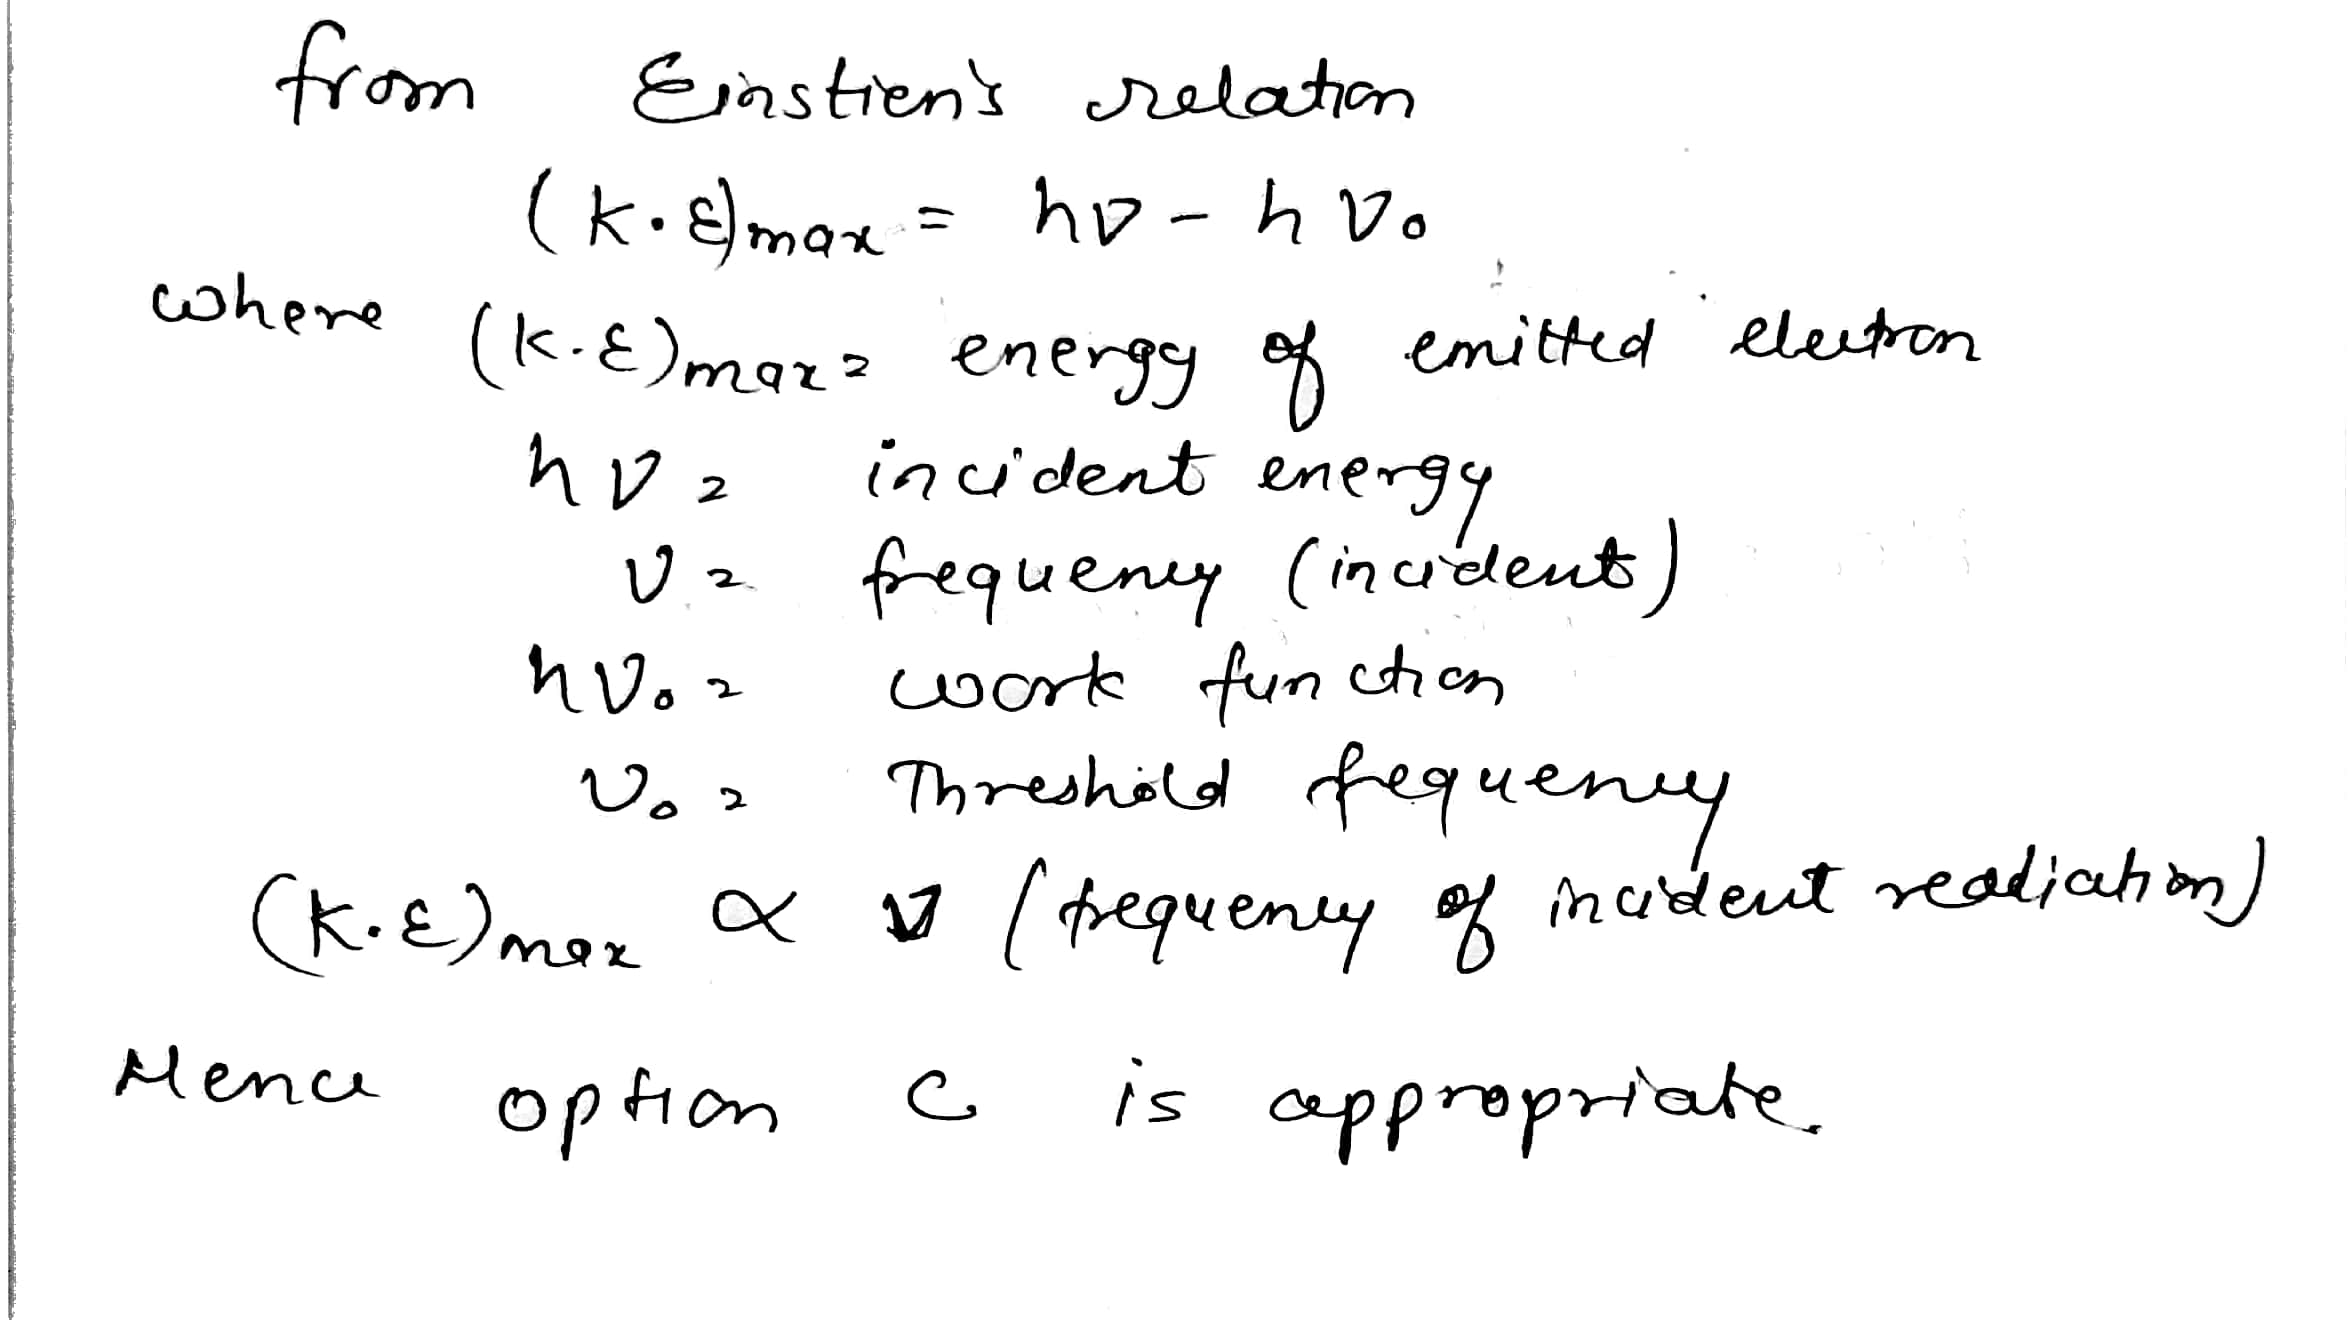 from Einstien's relation
(K.E)max = hν - hν₀
where (K.E)max = energy of emitted electron
hν = incident energy
ν = frequency (incident)
hν₀ = work function
ν₀ = Threshold fequency
(K.E)max ∝ ν (frequency of incident readiation)
Hence option C is appropriate.